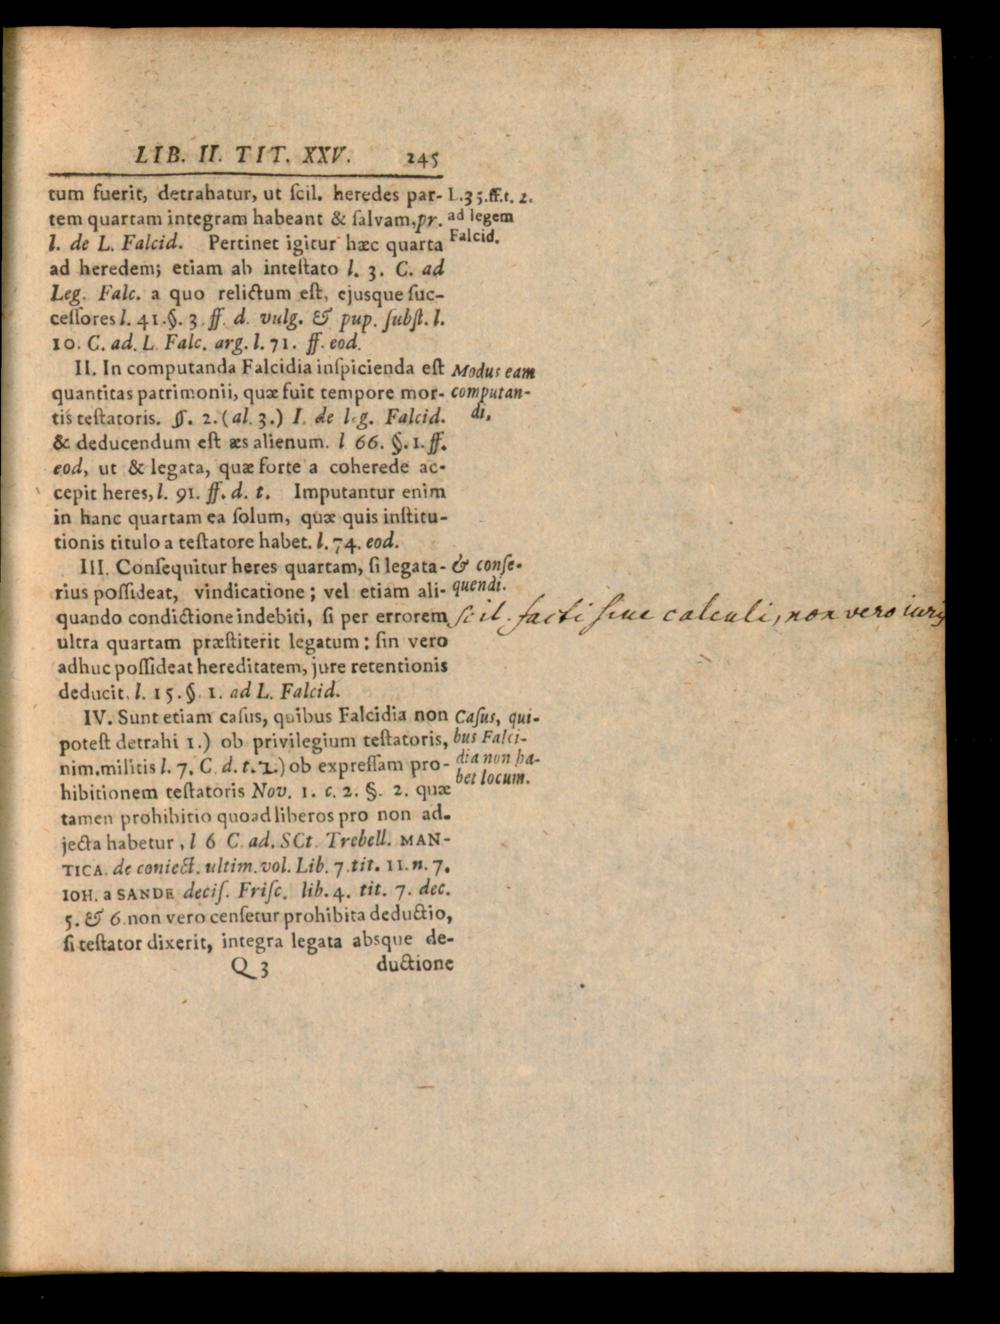 LIB. II. TIT. XXV. 245
tum fuerit, detrahatur, ut ſcil. heredes par-
tem quartam integram habeant & ſalvam, pr.
l. de L. Falcid. Pertinet igitur hæc quarta
ad heredem; etiam ab inteſtato l. 3. C. ad
Leg. Falc. a quo relictum eſt, ejusque ſuc-
ceſſores l. 41. §. 3. ff. d. vulg. & pup. ſubſt. l.
10. C. ad. L. Falc. arg. l. 71. ff. eod.
L. 35. ff. t. 2.
ad legem
Falcid.
II. In computanda Falcidia inſpicienda eſt
quantitas patrimonii, quæ fuit tempore mor-
tis teſtatoris. §. 2. (al. 3.) I. de leg. Falcid.
& deducendum eſt æs alienum. l 66. §. 1. ff.
eod, ut & legata, quæ forte a coherede ac-
cepit heres, l. 91. ff. d. t. Imputantur enim
in hanc quartam ea ſolum, quæ quis inſtitu-
tionis titulo a teſtatore habet. l. 74. eod.
Modus eam
computan-
di,
III. Conſequitur heres quartam, ſi legata-
rius poſſideat, vindicatione; vel etiam ali-
quando condictione indebiti, ſi per errorem
ultra quartam præſtiterit legatum; ſin vero
adhuc poſſideat hereditatem, jure retentionis
deducit. l. 15. §. 1. ad L. Falcid.
& conſe-
quendi.
scil. facti sive calculi, non vero iuris
IV. Sunt etiam caſus, quibus Falcidia non
poteſt detrahi 1.) ob privilegium teſtatoris,
nim. militis l. 7. C. d. t. 2.) ob expreſſam pro-
hibitionem teſtatoris Nov. 1. c. 2. §. 2. quæ
tamen prohibitio quoad liberos pro non ad-
jecta habetur, l 6 C. ad. SCt. Trebell. MAN-
TICA. de coniect. ultim. vol. Lib. 7. tit. 11. n. 7.
IOH. a SANDE deciſ. Friſc. lib. 4. tit. 7. dec.
5. & 6. non vero cenſetur prohibita deductio,
ſi teſtator dixerit, integra legata absque de-
Caſus, qui-
bus Falci-
dia non ha-
bet locum.
Q 3 ductione